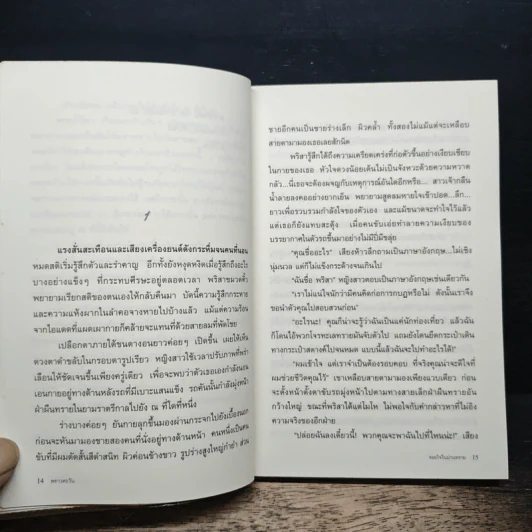 แรงสั่นสะเทือนและเสียงเครื่องยนต์ดังกระหึ่มจนคนที่นอน
หมดสติเริ่มรู้สึกตัวและรำคาญ อีกทั้งยังหงุดหงิดเมื่อรู้สึกถึงอะไร
บางอย่างแข็งๆ ที่กระทบศีรษะอยู่ตลอดเวลา พริสาขมวดคิ้ว
พยายามเรียกสติของตนเองให้กลับคืนมา บัดนี้ความรู้สึกกระหาย
และความแห้งผากในลำคอจางหายไปบ้างแล้ว แม้แต่ความร้อน
จากไอแดดที่แผดเผากายก็คล้ายจะแทนที่ด้วยสายลมที่พัดโชย
เปลือกตาภายใต้ขนตางอนยาวค่อยๆ เปิดขึ้น เผยให้เห็น
ดวงตาดำขลับในกรอบตารูปเรียว หญิงสาวใช้เวลาปรับภาพที่พร่า
เลือนให้ชัดเจนขึ้นเพียงครู่เดียว เพื่อจะพบว่าตัวเธอเองกำลังนอน
เอนกายอยู่ทางด้านหลังรถที่มีเบาะแสนแข็ง รถคันนั้นกำลังมุ่งหน้า
ฝ่าผืนทรายในยามราตรีกาลไปยัง ณ ที่ใดที่หนึ่ง
ร่างบางค่อยๆ ยันกายลุกขึ้นมองผ่านกระจกไปยังเบื้องนอก
ก่อนจะหันมามองชายสองคนที่นั่งอยู่ทางด้านหน้า คนหนึ่งเป็นคน
ขับที่มีผมดัดสั้นสีดำสนิท ผิวค่อนข้างขาว รูปร่างสูงใหญ่กำยำ ส่วน
14
ชายอีกคนเป็นชายร่างเล็ก ผิวคล้ำ ทั้งสองไม่แม้แต่จะเหลือบ
สายตามามองเธอเลยสักนิด
พริสารู้สึกได้ถึงความเครียดเคร่งที่ก่อตัวขึ้นอย่างเงียบเชียบ
ในกายของเธอ หัวใจดวงน้อยเต้นไม่เป็นจังหวะด้วยความหวาด
กลัว...นี่เธอจะต้องผจญกับเหตุการณ์อันใดอีกหรือ... สาวเจ้ากลืน
น้ำลายลงคออย่างยากเย็น พยายามสูดลมหายใจเข้าปอด...ลึก...
ยาวเพื่อรวบรวมกำลังใจของตัวเอง และแม้ขณะจะทำใจไว้แล้ว
แต่เธอก็ยังแทบสะดุ้ง เมื่อคนขับเอ่ยทำลายความเงียบของ
บรรยากาศในตัวรถขึ้นมาอย่างไม่มีปี่มีขลุ่ย
“คุณชื่ออะไร” เสียงห้าวลึกถามเธอเป็นภาษาอังกฤษ...ไม่เชิง
นุ่มนวล แต่ก็ไม่แข็งกระด้างจนเกินไป
“ฉันชื่อ พริสา” หญิงสาวตอบเป็นภาษาอังกฤษเช่นเดียวกัน
“เราไม่แน่ใจนักว่ามีคนคิดก่อการกบฏหรือไม่ ดังนั้นเราจึง
ขอนำตัวคุณไปสอบสวนก่อน”
“อะไรนะ! คุณก็น่าจะรู้ว่าฉันเป็นแค่นักท่องเที่ยว แล้วฉัน
ก็โดนไอ้พวกโจรทะเลทรายมันจับตัวไป แถมยังโดนยึดกระเป๋าเดิน
ทางกระเป๋าสตางค์ไปจนหมด แบบนี้แล้วฉันจะไปทำอะไรได้!”
“ผมเข้าใจ แต่เราจำเป็นต้องรอบคอบ ที่จริงคุณน่าจะดีใจที่
ผมช่วยชีวิตคุณไว้” เขาเหลือบสายตามามองเพียงแวบเดียว ก่อน
จะตั้งหน้าตั้งตาขับรถมุ่งไปตามทางสายเล็กฝ่าผืนทรายอัน
กว้างใหญ่ ขณะที่พริสาได้แต่โมโห ไม่พอใจกับคำกล่าวหาที่ไม่อิง
ความจริงของอีกฝ่าย
“ปล่อยฉันลงเดี๋ยวนี้! พวกคุณจะพาฉันไปที่ไหนน่ะ!” เสียง
15